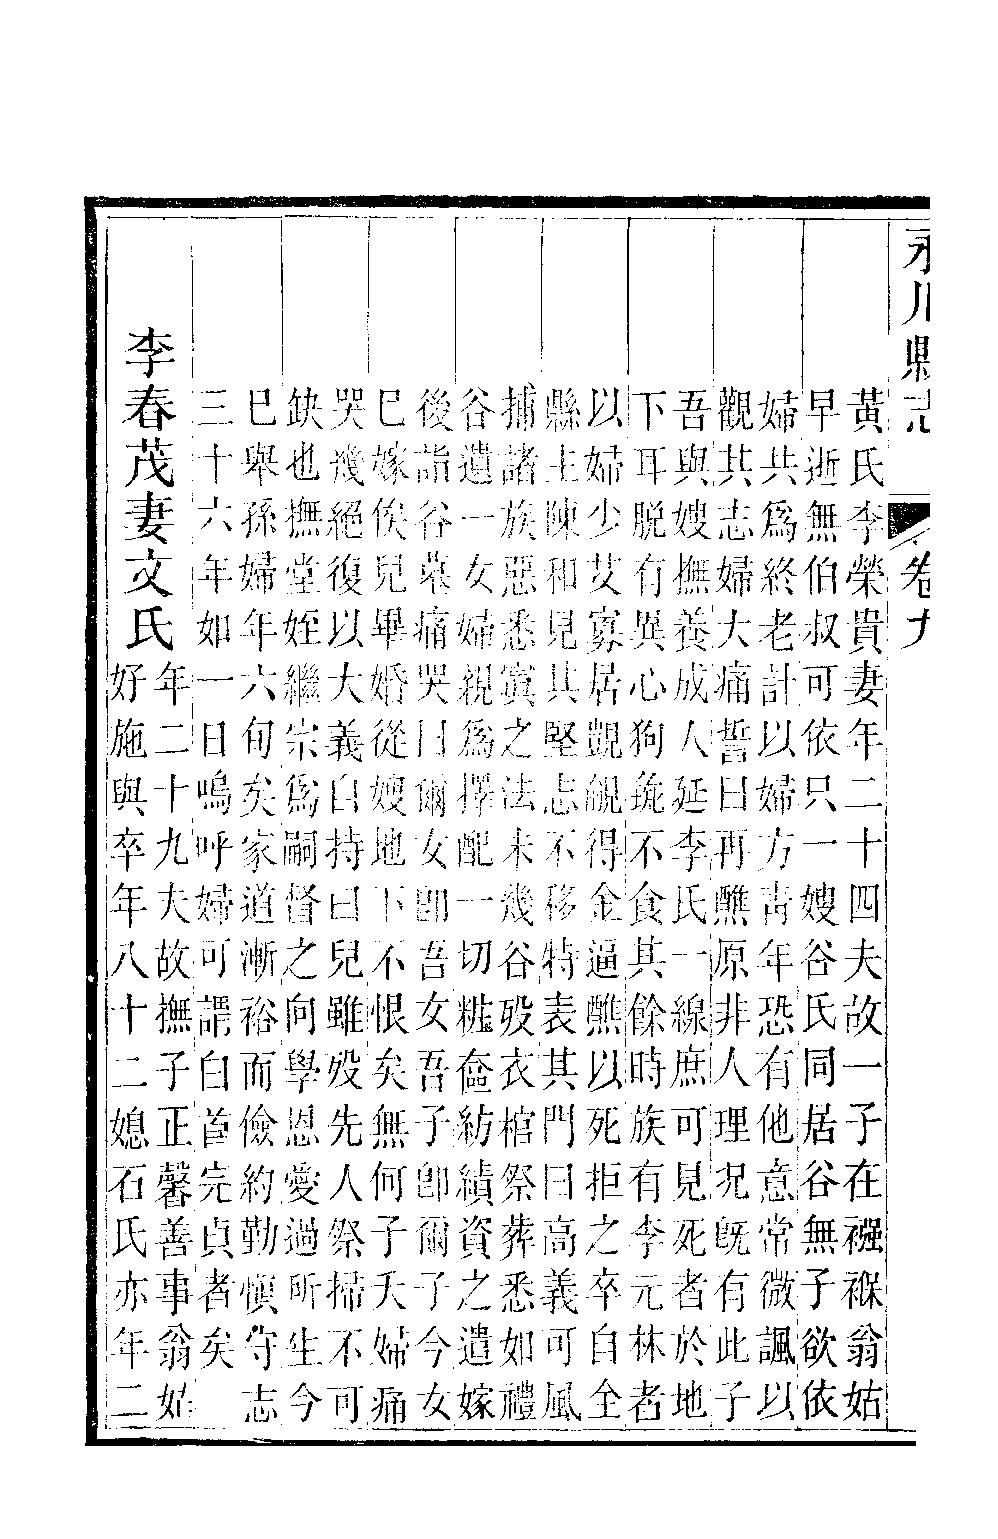 永川縣志
卷九
黃氏李榮貴妻年二十四夫故一子在襁褓翁姑
早逝無伯叔可依只一嫂谷氏同居谷無子欲依
婦共爲終老計以婦方靑年恐有他意常微諷以
觀其志婦大痛誓曰再醮原非人理况旣有此子
吾與嫂撫養成人延李氏一線庶可見死者於地
下耳脫有異心狗彘不食其餘時族有李元林者
以婦少艾寡居覬覦得金逼醮以死拒之卒白全
縣主陳和見其堅志不移特表其門曰高義可風
捕諸族惡悉寘之法未幾谷殁衣棺祭葬悉如禮
谷遺一女婦親爲擇配一切粧奩紡績資之遣嫁
後詣谷墓痛哭曰爾女卽吾女吾子卽爾子今女
已嫁俟兒畢婚從嫂地下不恨矣無何子夭婦痛
哭幾絕復以大義自持曰兒雖殁先人祭掃不可
缺也撫堂姪繼宗爲嗣督之向學恩愛過所生今
已舉孫婦年六旬矣家道漸裕而儉約勤愼守志
三十六年如一日嗚呼婦可謂白首完貞者矣
李春茂妻文氏
年二十九夫故撫子正馨善事翁姑
好施與卒年八十二媳石氏亦年二